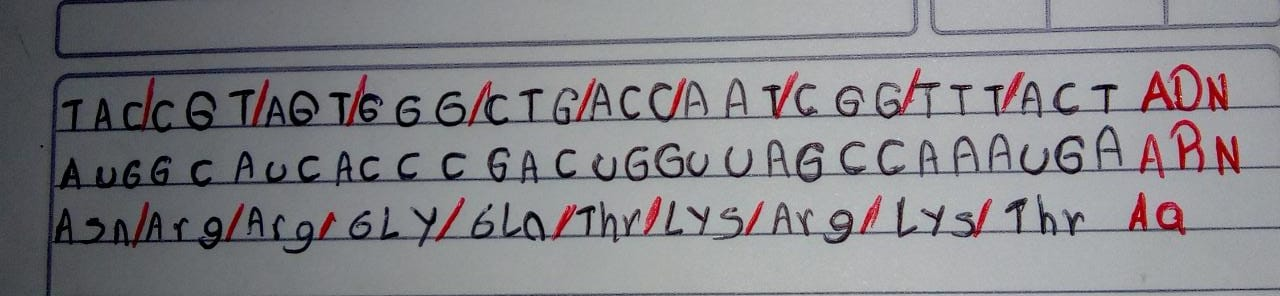 TAC/CGT/AGT/GGG/CTG/ACC/AAT/CGG/TTT/ACT ADN
AUGGCAUCACCCGACUGGUUAGCCAAAUGA ARN
Asn/Arg/Arg/GLY/GLn/Thr/LYS/Arg/LYS/Thr Aa